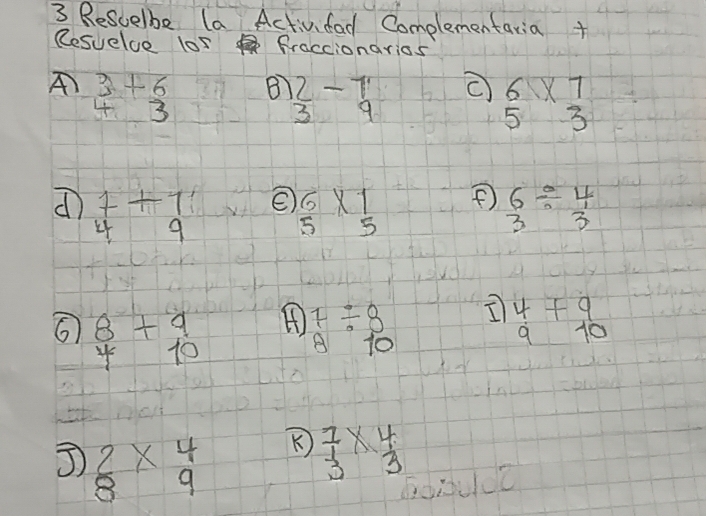 3 Resuelbe la Actividad Complementaria +
Resuelve los fraccionarios
A) 3/4 + 6/3 B) 2/3 - 7/9 C) 6/5 X 7/3
d) 7/4 + 7/9 E) 6/5 X 1/5 F) 6/3 ÷ 4/3
G) 8/4 + 9/10 H) 7/8 ÷ 8/10 I) 4/9 + 9/10
J) 2/8 X 4/9 K) 7/3 X 4/3